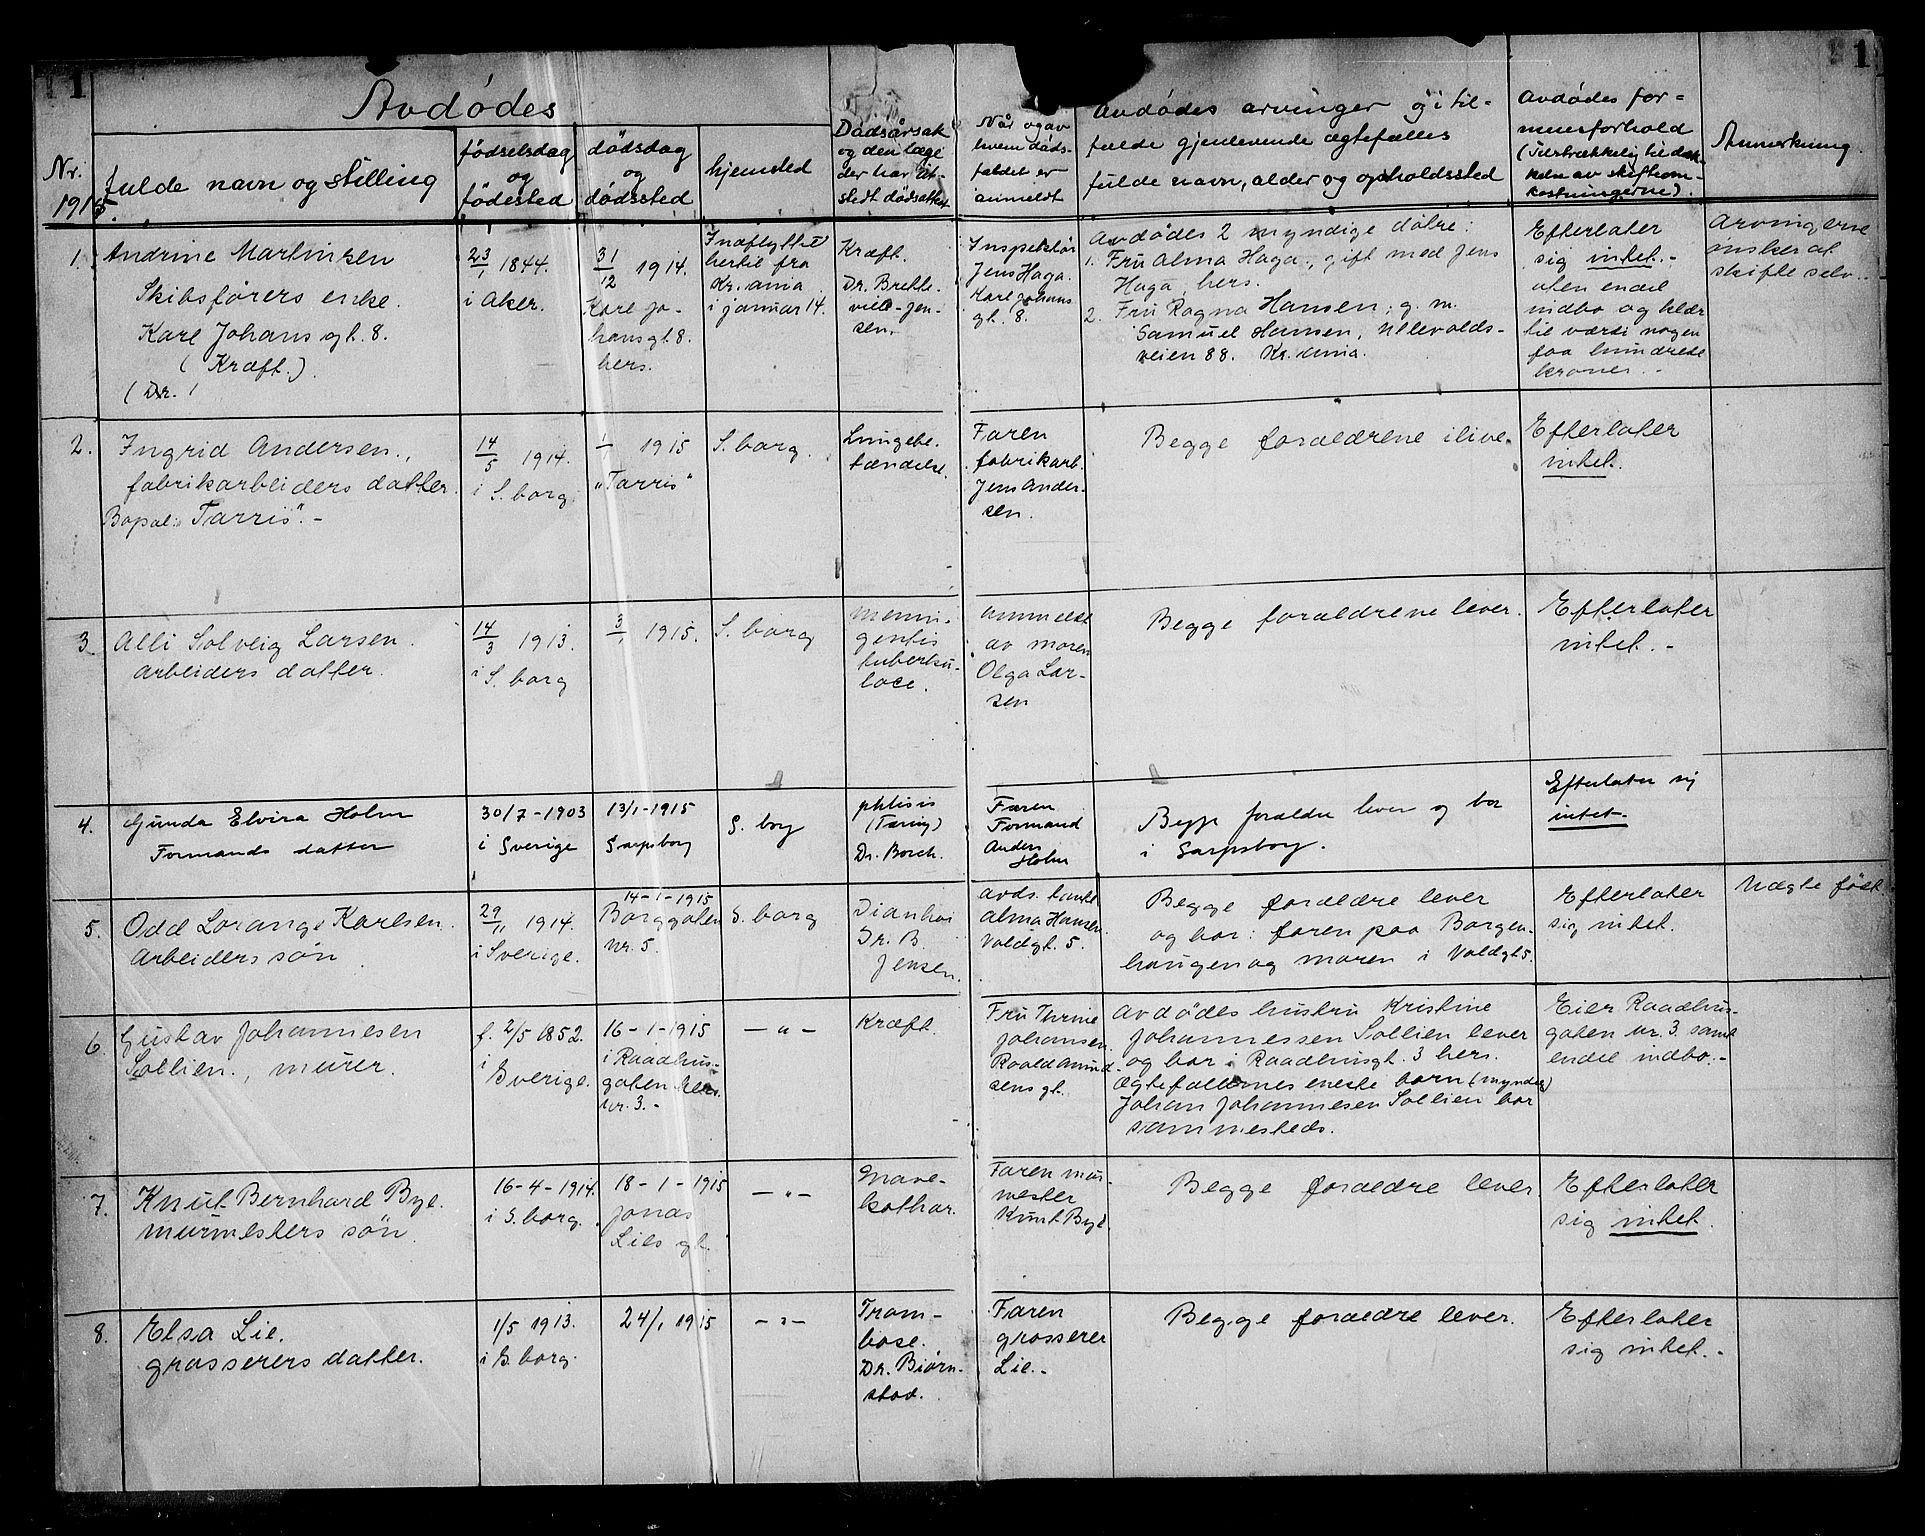 1
1
Avdødes
Nr.
1915.
fulde navn og stilling
fødselsdag
og
fødested
dødsdag
og
dødssted
hjemsted
Dødsårsak
og den læge
der har ut-
stedt dødsattest
Når og av
hvem døds-
faldet er
anmeldt
Avdødes arvinger og i til-
fælde gjenlevende ægtefælles
fulde navn, alder og opholdssted
Avdødes for-
muesforhold
(Tilstrækkelig til dæk-
ken av skifteom-
kostningerne).
Anmerkning.
1.
Andrine Martinsen
Skibsførers enke.
Karl Johans gt. 8.
(Kræft.)
(Dr. /
23/1 1844.
i Aker.
31/12 1914.
Karl Jo-
hans gt. 8.
hers.
Indflyttet
hertil fra
Kr.ania
i januar 14.
Kræft.
Dr. Brette-
ville-Jen-
sen.
Inspektør
Jens Haga.
Karl Johans
gt. 8.
Avdødes 2 myndige døtre:
1. Fru Alma Haga, gift med Jens
Haga, hers.
2. Fru Ragna Hansen, g. m.
Samuel Hansen, Ullevolds-
veien 88. Kr.ania.
Efterlater
sig intet.-
uten endel
indbo og klær
til værdi nogen
faa hundrede
kroner. -
Arvingerne
ønsker at
skifte selv.
2.
Ingrid Andersen.,
fabrikarbeiders datter.
Bopæl: "Tarris". -
14/5 1914.
i S.borg.
/ 1915
"Tarris"
S.borg.
Lungebe-
tændelse.
Faren
fabrikarb.
Jens Ander-
sen.
Begge forældrene ilive.
Efterlater
intet.
3.
Alli Solveig Larsen.
arbeiders datter.
14/3 1913.
i S.borg
3/1 1915.
S.borg
menin-
gentis
tuberku-
lose.
anmeldt
av moren
Olga Lar-
sen
Begge forældrene lever.
Efterlater
intet. -
4.
Gunda Elvira Holm
Formands datter
30/7 - 1903
i Sverige
13/1 - 1915
Sarpsborg
S.borg
phtisis
(Tæring)
Dr. Borch.
Faren
Formand
Anders
Holm
Begge forældre lever og bor
i Sarpsborg.
Efterlater sig
intet.
5.
Odd Lorange Karlsen.
Arbeiders søn
29/11 1914.
i Sverige.
14-1-1915
Borggaten
nr. 5.
S.borg
Dr. B.
Jensen.
Alma Hansen.
Voldgt. 5.
Begge forældre lever
og bor: faren paa Borgen-
haugen og moren i Voldgt 5.
Efterlater
sig intet.
Uægte født
6.
Gustav Johannesen
Sollien., murer.
f. 2/5 1852.
i
Sverige.
16-1-1915
i Raadhus-
gaten hers.
nr. 3. -
- " -
Kræft.
Fru Thrine
Johansen.
Roald Amund-
sens gt.
Avdødes hustru Kristine
Johannessen Sollien lever
og bor i Raadhusgt. 3 hers.
Ægtefællernes eneste barn (myndig)
Johan Johannesen Sollien bor
sammesteds.
Eier Raadhus-
gaten nr. 3. samt
endel indbo. -
7.
Knut Bernhard Bye.
murmesters søn.
16-4-1914.
i S.borg.
18-1-1915
Jonas
Lies gt.
- " -
Mave-
kathar.
Faren mur-
mester
Knut Bye.
Begge forældre lever
Efterlater
sig intet.
8.
Elsa Lie.
grosserers datter.
1/5 1913.
i S.borg.
24/1 1915
- " -
Trom-
bose.
Dr. Biørn-
stad.
Faren
grosserer
Lie. -
Begge forældre lever.
Efterlater
sig intet. -